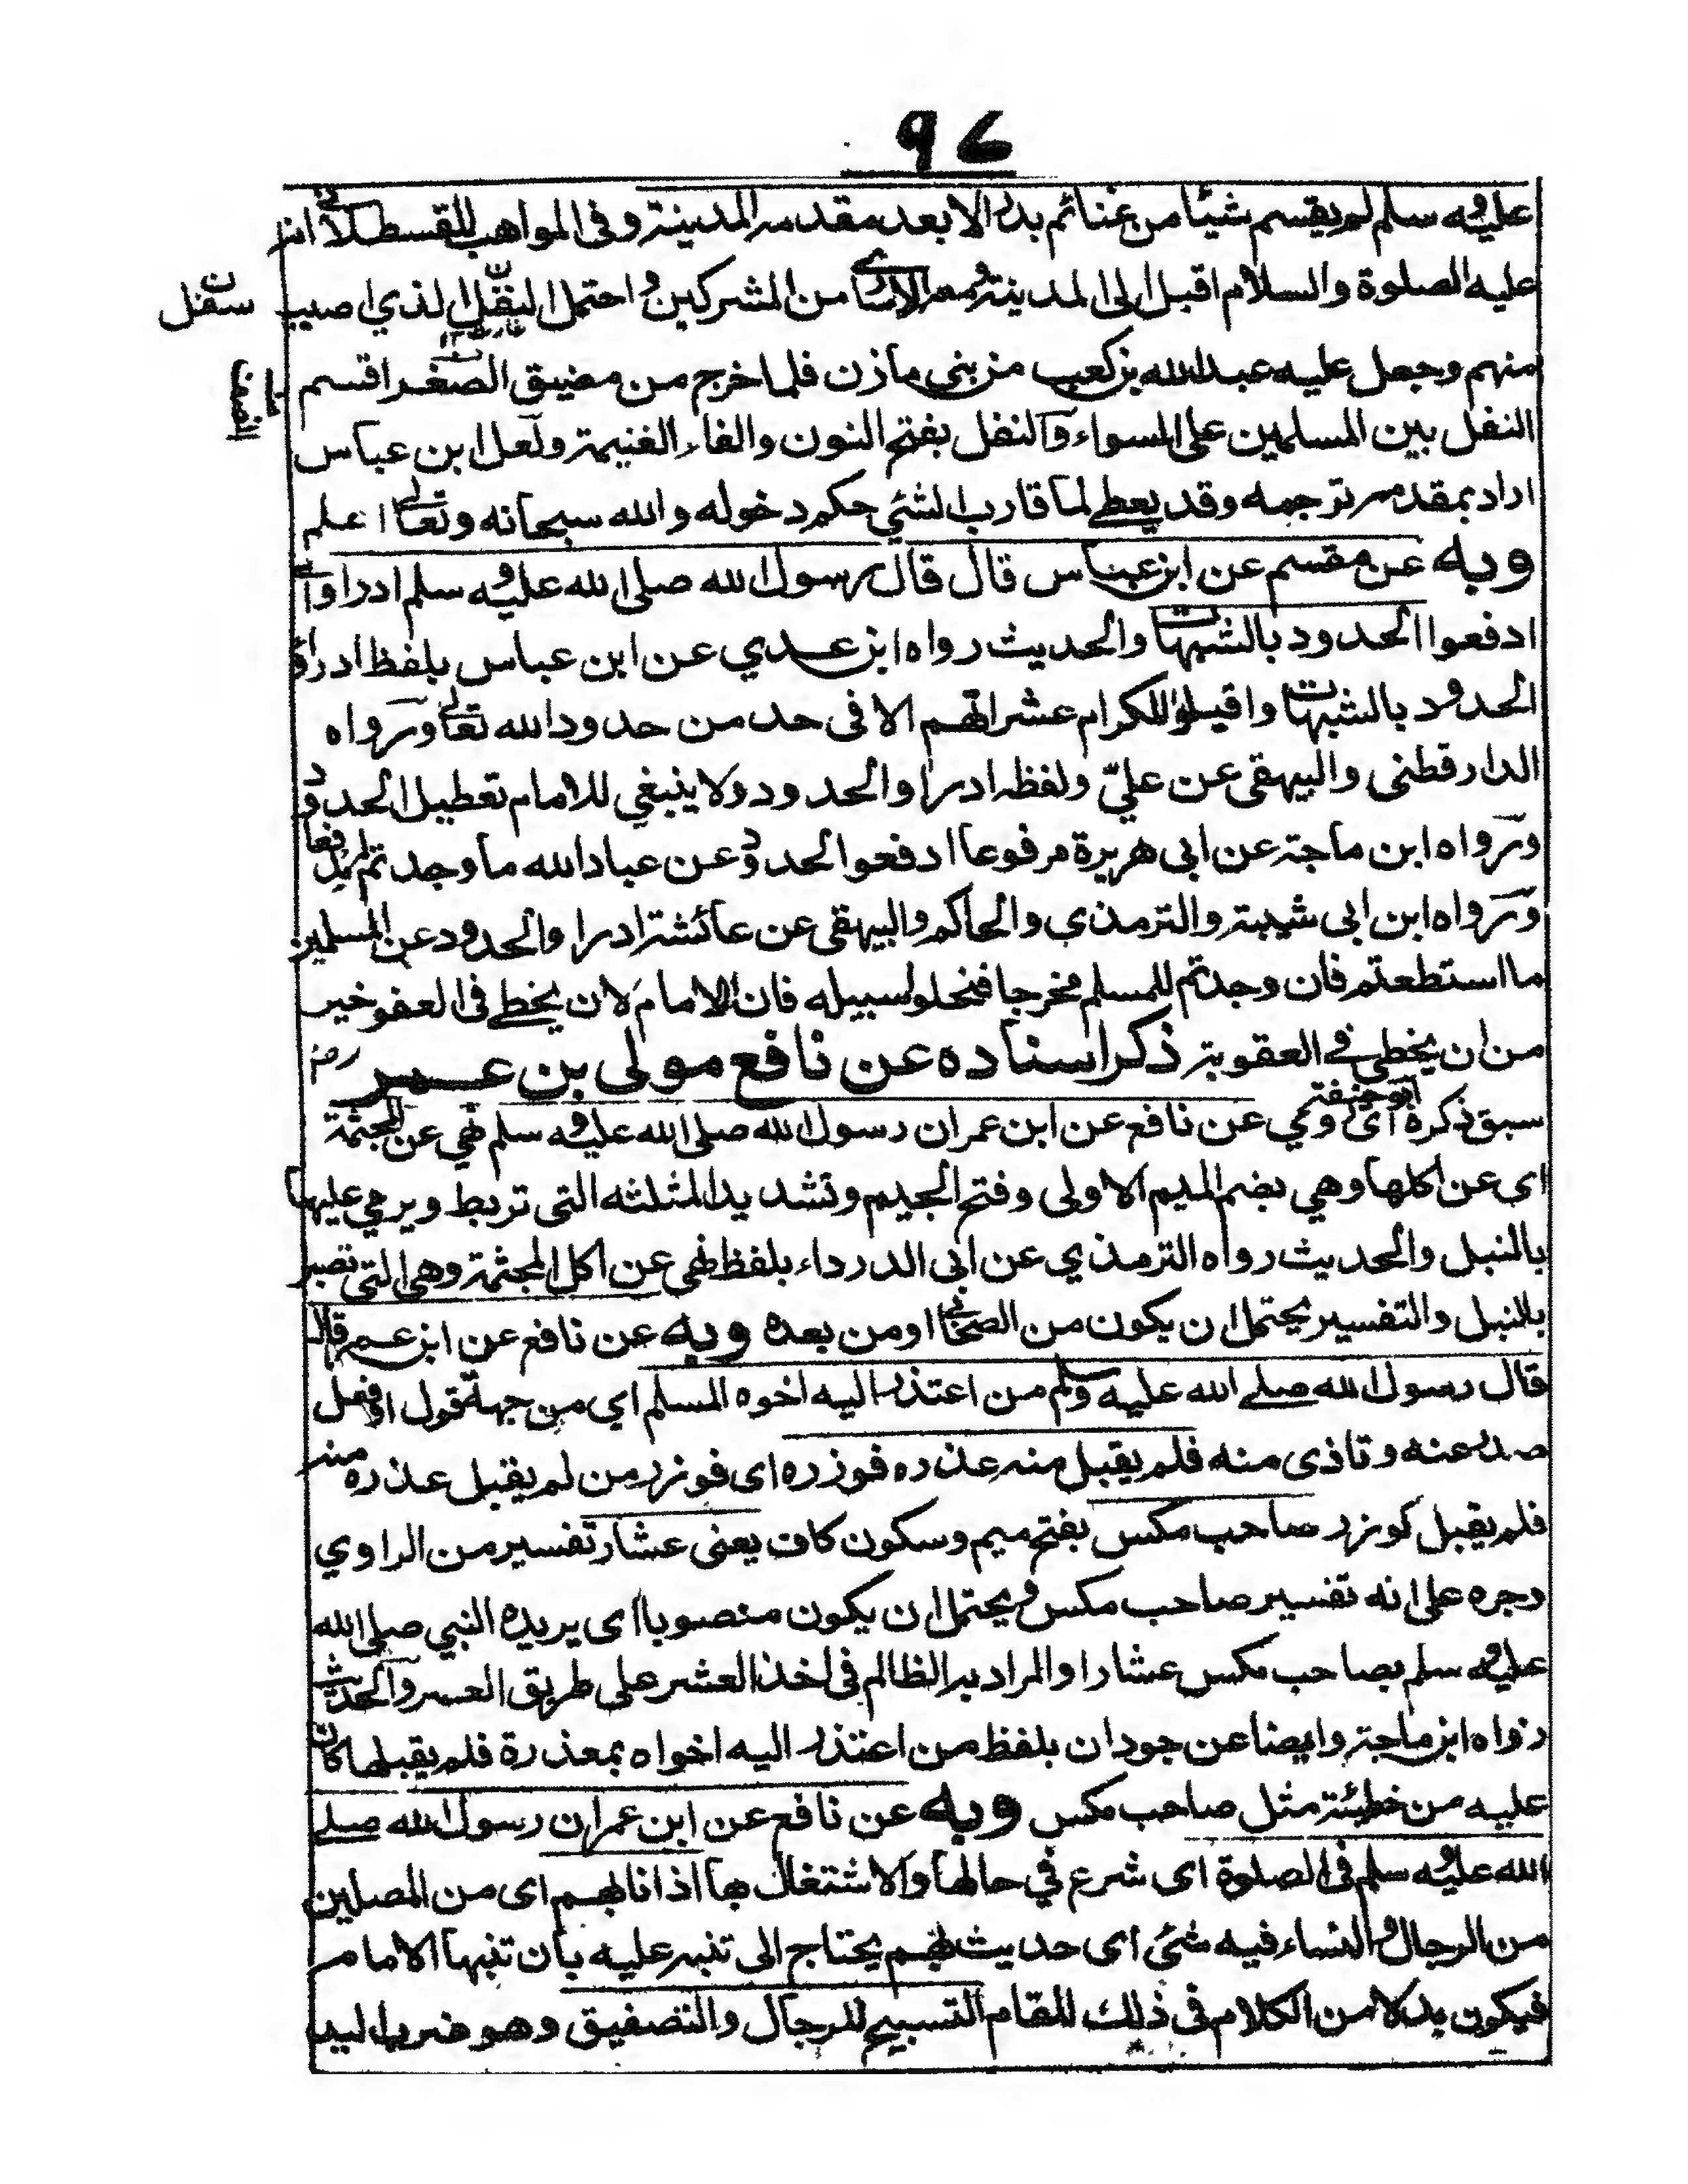 ٩٦
عليه وسلم لم يقسم شيئا من غنائم بدر الا بعد مقدمه المدينة وفى المواهب للقسطلانى انه
عليه الصلوة والسلام اقبل الى المدينة ومعه الاسارى من المشركين واحتمل النفل الذي اصيب
منهم وجعل عليه عبد الله بن كعب من بني مازن فلما خرج من مضيق الصفراء قسم
النفل بين المسلمين على السواء والنفل بفتح النون والفاء الغنيمة ولعل ابن عباس
اراد بمقدمه توجهه وقد يعطى لما قارب الشئ حكم دخوله والله سبحانه وتعالى اعلم
وبه عن مقسم عن ابن عباس قال قال رسول الله صلى الله عليه وسلم ادرأوا اى
ادفعوا الحدود بالشبهات والحديث رواه ابن عدي عن ابن عباس بلفظ ادرأوا
الحدود بالشبهات واقيلوا الكرام عثراتهم الا فى حد من حدود الله تعالى ورواه
الدارقطنى والبيهقى عن عليّ ولفظه ادرأوا الحدود ولا ينبغي للامام تعطيل الحدود
ورواه ابن ماجة عن ابى هريرة مرفوعا ادفعوا الحدود عن عباد الله ما وجدتم له مدفعا
ورواه ابن ابى شيبة والترمذي والحاكم والبيهقى عن عائشة ادرأوا الحدود عن المسلمين
ما استطعتم فان وجدتم للمسلم مخرجا فخلوا سبيله فان الامام لان يخطى فى العفو خير
من ان يخطى فى العقوبة ذكر اسناده عن نافع مولى بن عمر رض
سبق ذكره اى ابو حنيفة روى عن نافع عن ابن عمر ان رسول الله صلى الله عليه وسلم نهي عن المجثمة
اى عن اكلها وهي بضم الميم الاولى وفتح الجيم وتشديد المثلثه التى تربط ويرمي عليها
بالنبل والحديث رواه الترمذي عن ابى الدرداء بلفظ نهى عن اكل المجثمة وهى التى تصبر
بالنبل والتفسير يحتمل ان يكون من الصحابى او من بعده وبه عن نافع عن ابن عمر قال
قال رسول الله صلى الله عليه وسلم من اعتذر اليه اخوه المسلم اي من جهة قول او فعل
صدر عنه وتاذى منه فلم يقبل منه عذره فوزره اى فوزر من لم يقبل عذره منه
فلم يقبل كوزر صاحب مكس بفتح ميم وسكون كاف يعنى عشار تفسير من الراوي
وجره على انه تفسير صاحب مكس ويحتمل ان يكون منصوبا اى يريده النبي صلى الله
عليه وسلم بصاحب مكس عشارا والمراد به الظالم فى اخذ العشر على طريق العسر والحديث
رواه ابن ماجة وايضا عن جودان بلفظ من اعتذر اليه اخواه بمعذرة فلم يقبلها كان
عليه من خطيئة مثل صاحب مكس وبه عن نافع عن ابن عمر ان رسول الله صلى
الله عليه وسلم فى الصلوة اى شرع في حالها والاشتغال بها اذا نابهم اى من المصلين
من الرجال والنساء فيه شئ اى حديث لهم يحتاج الى تنبه عليه بان تنبها الامام
فيكون بدلا من الكلام فى ذلك المقام التسبيح للرجال والتصفيق وهو ضرب اليد